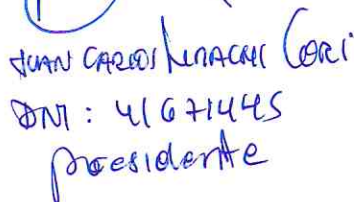 JUAN CARLOS Cori
DNI: 41671445
presidente